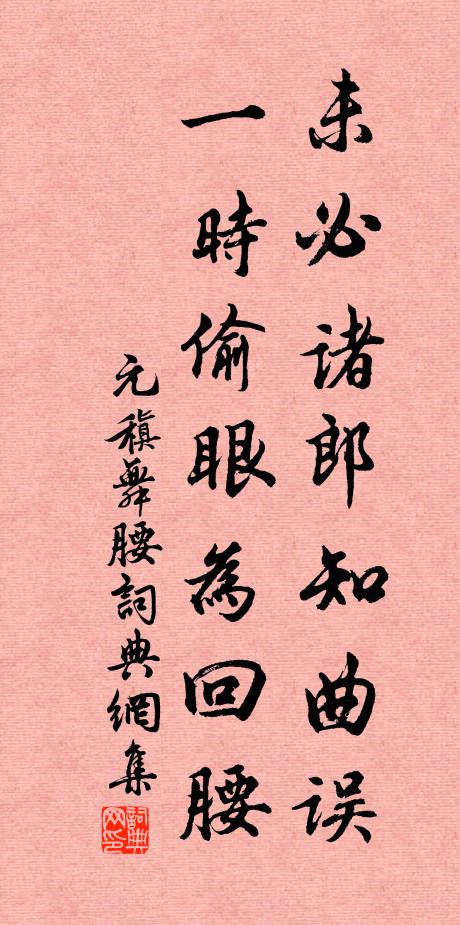 未必诸郎知曲误
一時偷眼為回腰
元稹舞腰詞典網集
詞典网印